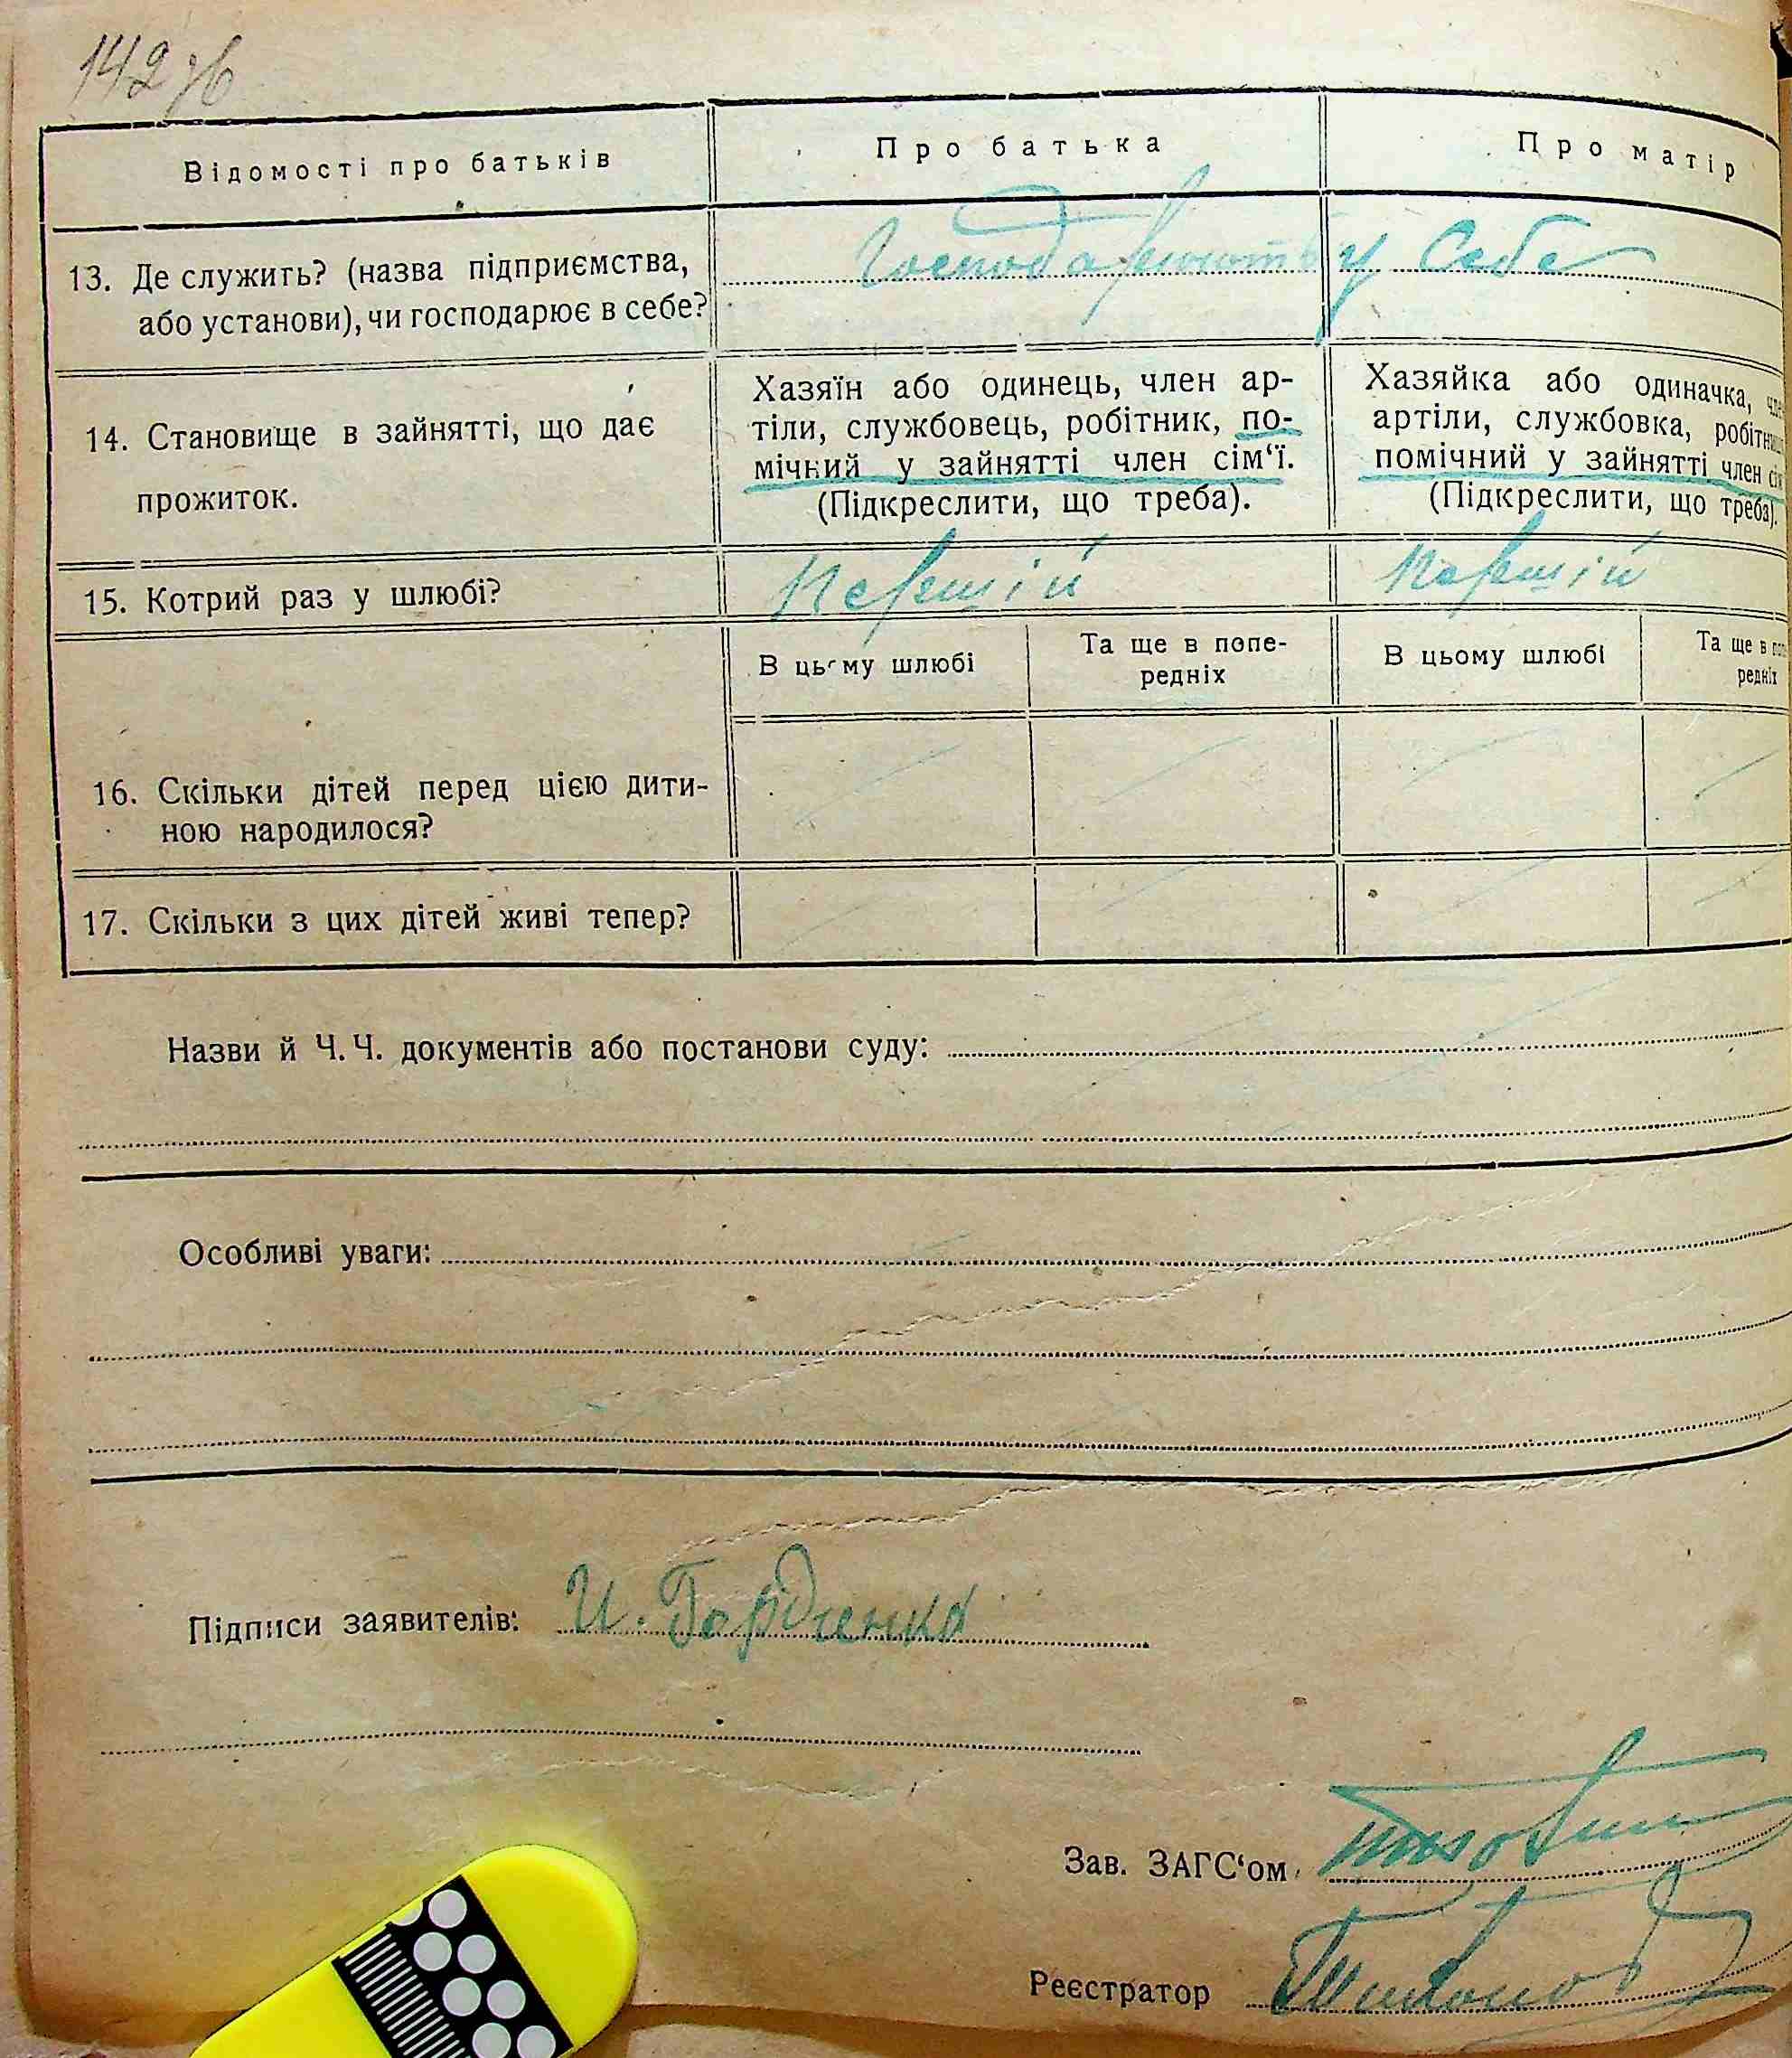 142 зв
Відомості про батьків
Про батька
Про матір
13. Де служить? (назва підприємства,
або установи), чи господарює в себе?
Господарюють у себе
14. Становище в зайнятті, що дає
прожиток.
Хазяїн або одинець, член ар-
тіли, службовець, робітник, по-
мічний у зайнятті член сім‘ї.
(Підкреслити, що треба).
Хазяйка або одиначка,
артіли, службовка,
помічний у зайнятті член
(Підкреслити, що треба).
15. Котрий раз у шлюбі?
Першій
Першій
В цьому шлюбі
Та ще в попе-
редніх
В цьому шлюбі
Та ще в
редніх
16. Скільки дітей перед цією дити-
ною народилося?
17. Скільки з цих дітей живі тепер?
Назви й Ч. Ч. документів або постанови суду:
Особливі уваги:
Підписи заявителів: И.
Зав. ЗАГС‘ом
Реєстратор